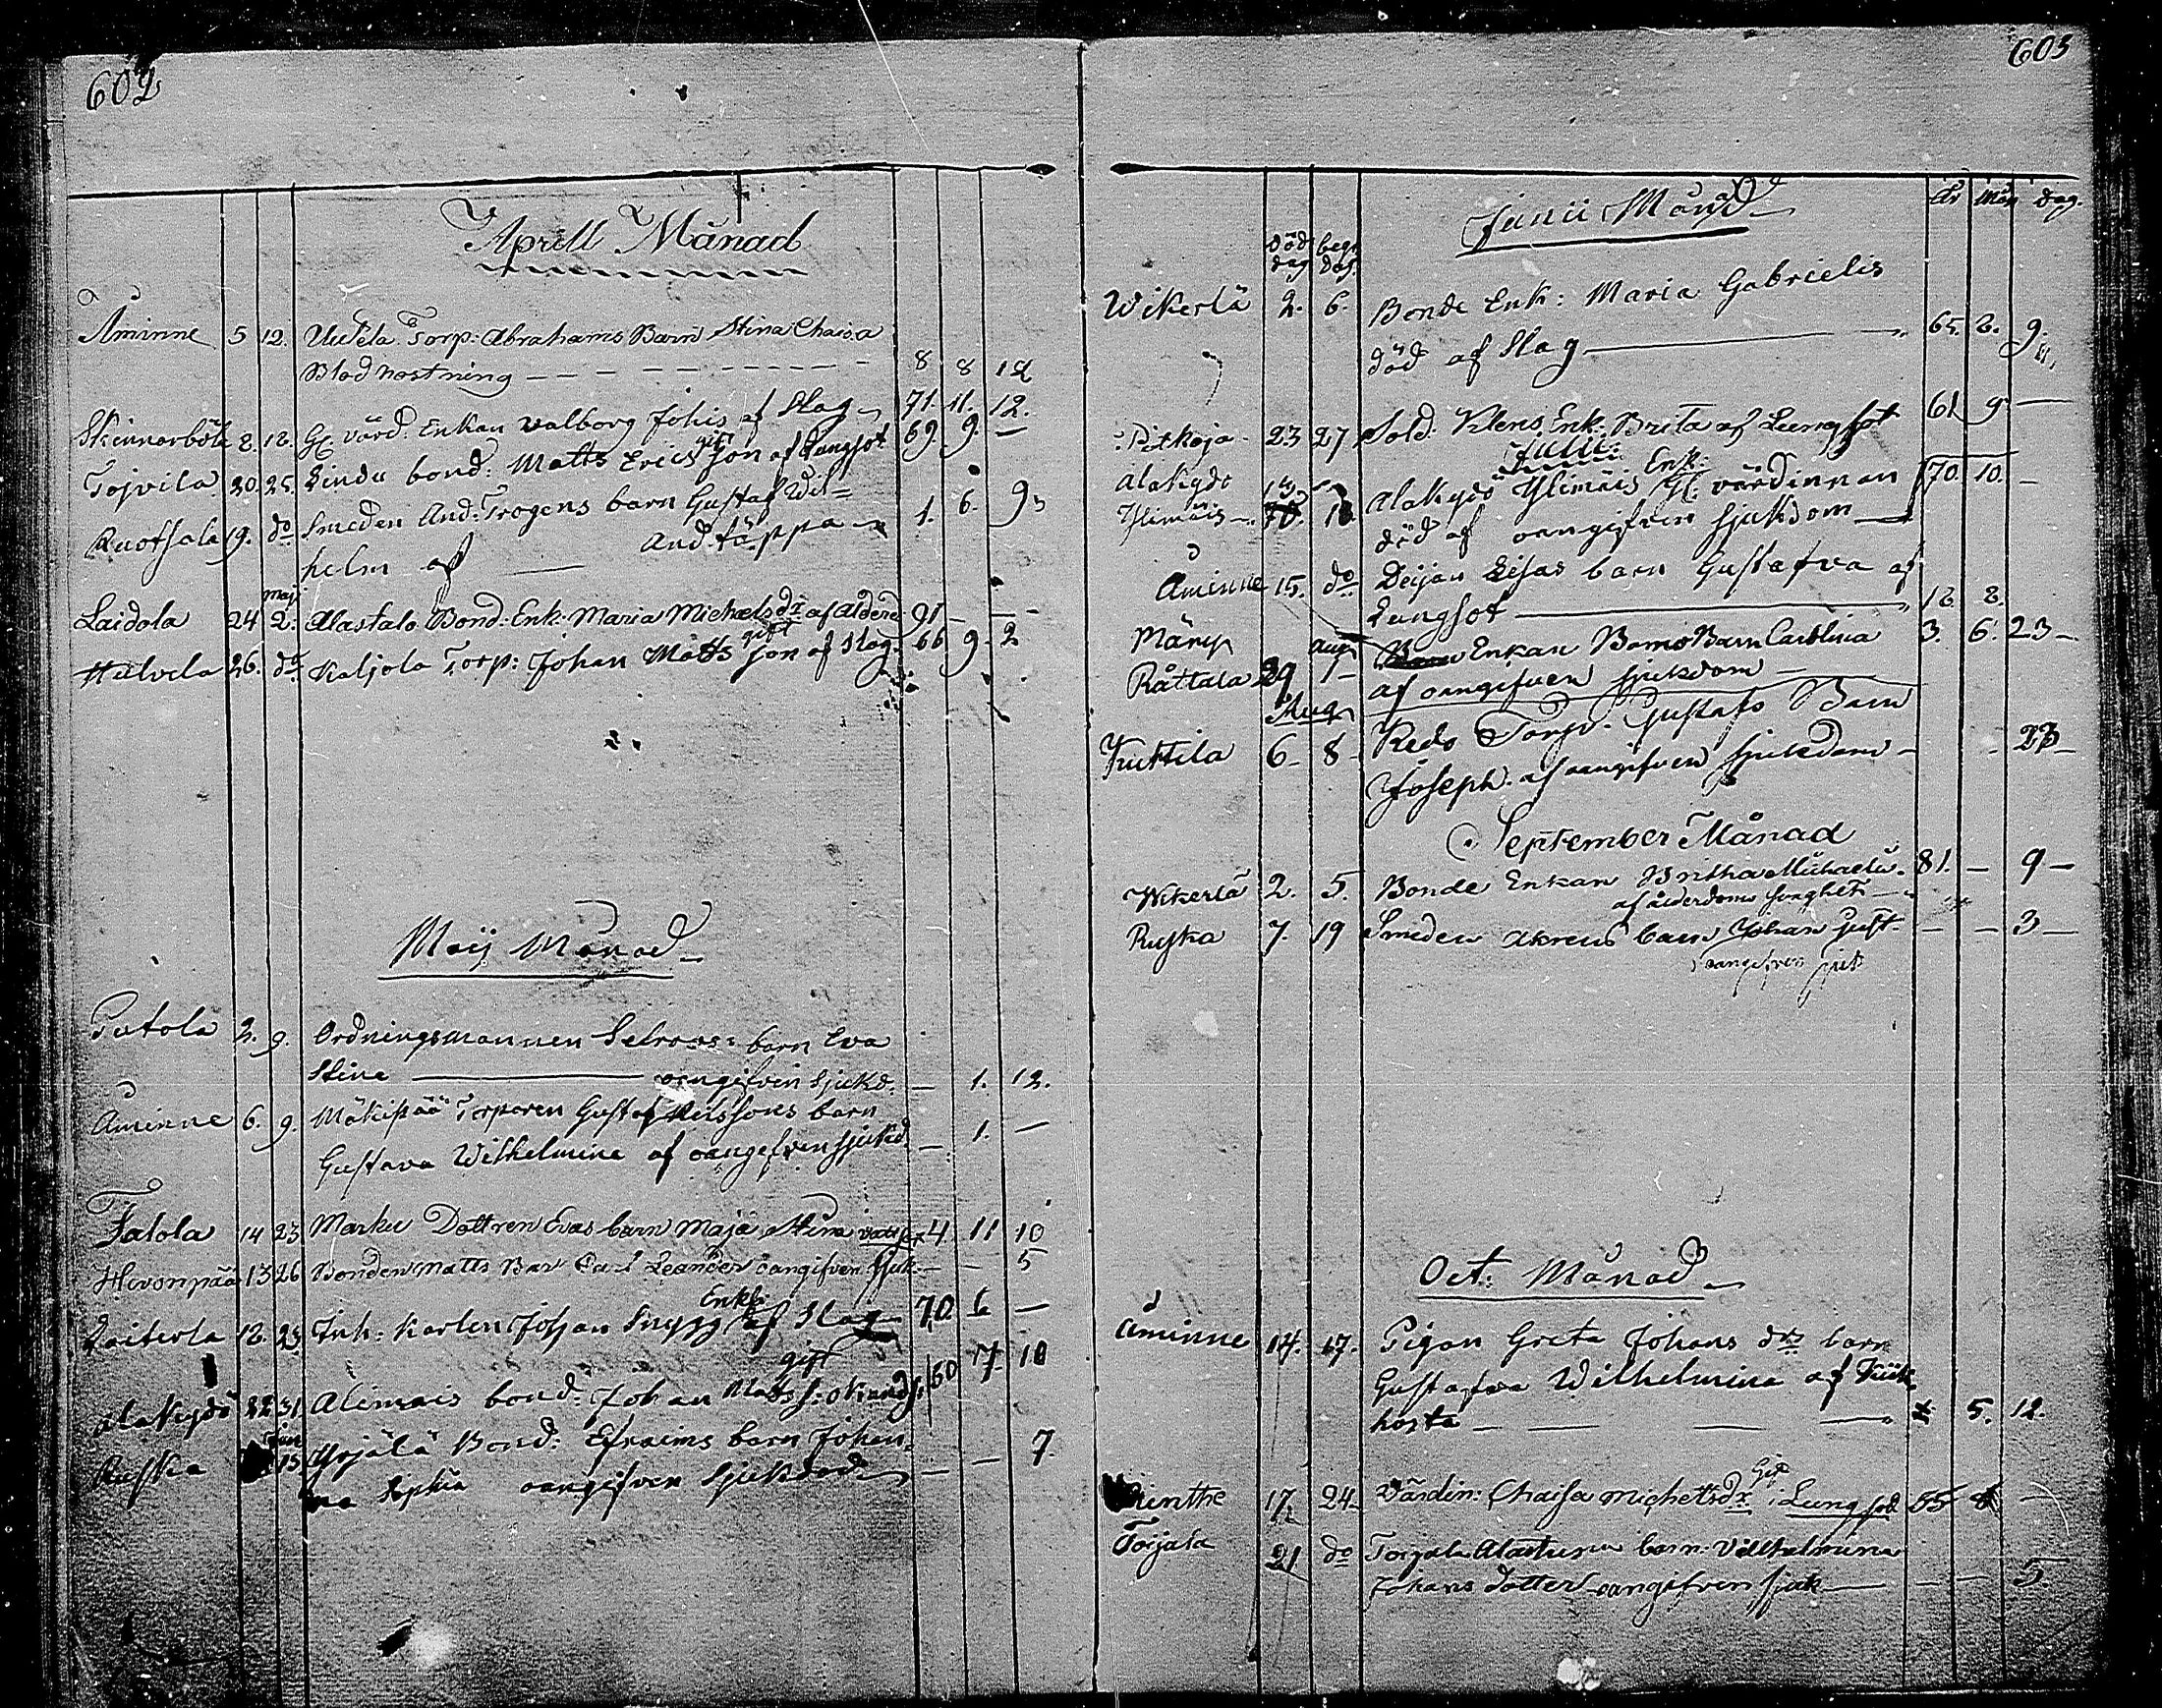 602
Aprill Månad
Åminne 5 12. Uutela Torp: Abrahams Barn Stina Chaisa
Blod hostning — — — 8 8 12
Skinnarböle 8. 12. Gl värd. Enkan Valborg Johis af Slag 71. 11. 12.
Tojvila 20. 25. Lindu bond: Matts Erics gift son af Lungsot 69. 9. —
Ruotsala 19. do Smeden And: Trogens barn Gustaf Wil=
helm af — Andtäppa 1. 6. 9
Maj
Laidola 24 2. Alastalo Bond. Enk. Maria Michaelsdr af Ålderd 91 — —
Hulvela 26. do Kaljola Torp: Johan Matts gift son af Slag 66 9 2
Maij Månad
Putola 2. 9. Ordningsmannen Selroos: barn Eva
Stina — oangifven sjukd. — 1. 12.
Åminne 6. 9. Mäkipää Torparen Gustaf Nilssons barn
Gustava Wilhelmina af oangifven sjukd — 1. —
Tatola 14 23 Marku Dottren Evas barn Maja Stina 4 11 10
Hevonpää 13 26 Bonden Matts Barn Carl Leander oangifven sjuk — — 5
Enkl:
12. 23 Inh: Karlen Johan Snygg af Slag 70 6 —
gift
Alakydö 22 31 Alimais bond: Johan Matts s: 60 7. 10
Jun
Ruska 13 Yrjälä Bond: Efraims barn Johan
na Sophia oangifven Sjukdod — — 7.
603
Junii Månad
År Mån dag.
död dag begr dag
Wikerlä 2. 6. Bonde Enk: Maria Gabrielis
död af Slag — 65. 2. 9.
Pitkoja 23 27 Sold. Klens Enk: Brita af Lungsot 61 9 —
Julii:
Enk:
Alakydö Alakydö Ylimäis Gl: värdinnan 70. 10. —
Ylimäis död af oangifven sjukdom
Åminne 15. do Deijan Lisas barn Gustafva af
Lungsot — 12. 2.
Märy Aug Enkan Bomo Barn Carolina 3. 6. 23 —
Råttala 29 1 — af oangifven sjukdom —
Aug
Kuttila 6 — 8 — Reds Torp. Gustafs Barn
Joseph. af oangifven sjukdom — 23 —
September Månad
Wikerlä 2. 5. Bonde Enkan Britha Michaelis. 81. — 9 —
af ålderdoms svaghet —
Ruska 7. 19 Smeden barn Johan Gust. — — 3 —
oangifven sjuk
Oct: Månad
Åminne 14. 17. Pigan Greta Johans dr barn
Gustafva Wilhelmina af Kik
hosta — — — 5. 12.
17. 24 Värdin: Chaisa Michelsdr Gift i Lungsot 55 —
Toijala 21 do Toijala barn: Vilhelmina
Johans dotter oangifven sjuk — — — 5.